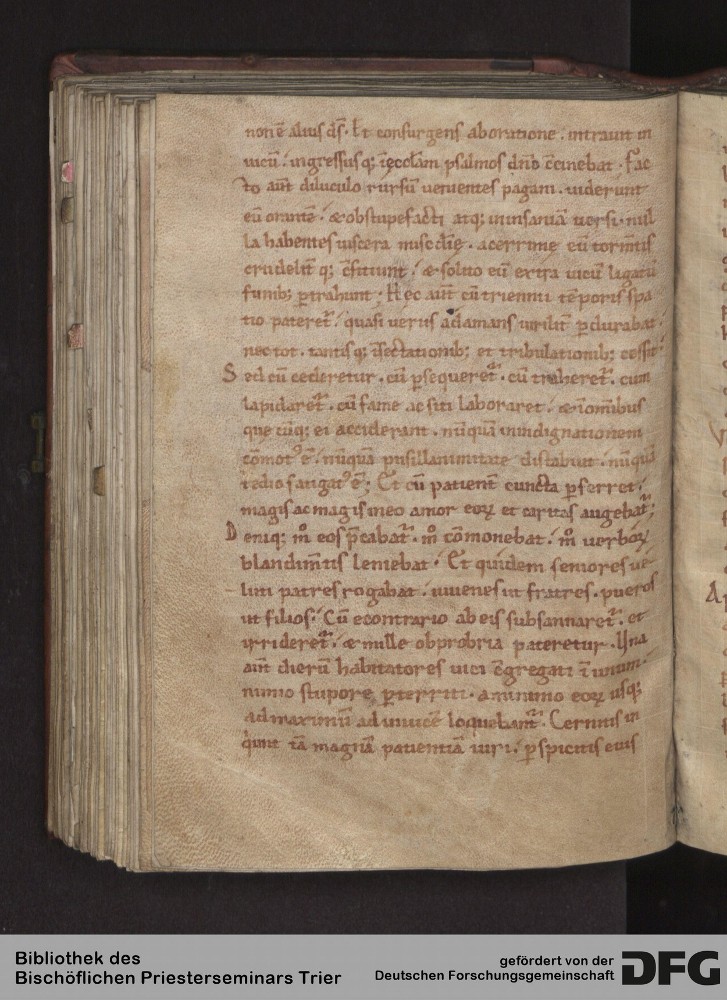 non ē alius d̄s. Et consurgens ab oratione. intravit in
vicū. ingressusq; ī eccl̄am psalmos dn̄o c̄cinebat. Fac
to aūt diluculo rursū venientes pagani. viderunt
eū orantē. & obstupefacti atq; in insaniā versi. nul
la habentes viscera misc̄dię. acerrime eū torm̄tis
crudelit̄q; c̄ficiunt. & solito eū extra vicū ligatū
funib; ptrahunt. Hec aūt cū triennii tēporis spa
tio pateret̄. quasi verus adamans virilit̄ pdurabat.
nec tot. tantisq; īsectationib; et tribulationib; cessit.
Sed cū cederetur. cū psequeret̄. cū traheret̄. cum
lapidaret̄. cū fame ac siti laboraret. & ī om̄ibus
que cūq; ei acciderant. nūquā in indignationem
cōmot᾽ ē. nūquā pusillanimitate distabuit. nūquā
tedio faugat᾽ ē; Et cū patient̄ cuncta pferret.
magis ac magis in eo amor eoꝝ et caritas augebat̄;
Deniq; m̊ eos p̄cabat̄. m̊ cōmonebat. m̊ verboꝝ
blandim̄tis leniebat. Et quidem seniores ve
luti patres rogabat. iuvenes ut fratres. pueros
ut filios. Cū econtrario ab eis subsannaret̄. et
irrideret̄. & mille obprobria pateretur. Una
aūt dierū habitatores vici c̄gregati ī unum.
nimio stupore pterriti. a minimo eoꝝ usq;
ad maximū ad invicē loquebant̄. Cernitis in
quiunt tā magnā patientiā viri. pspicitis eius
Bibliothek des
Bischöflichen Priesterseminars Trier
gefördert von der
Deutschen Forschungsgemeinschaft
DFG